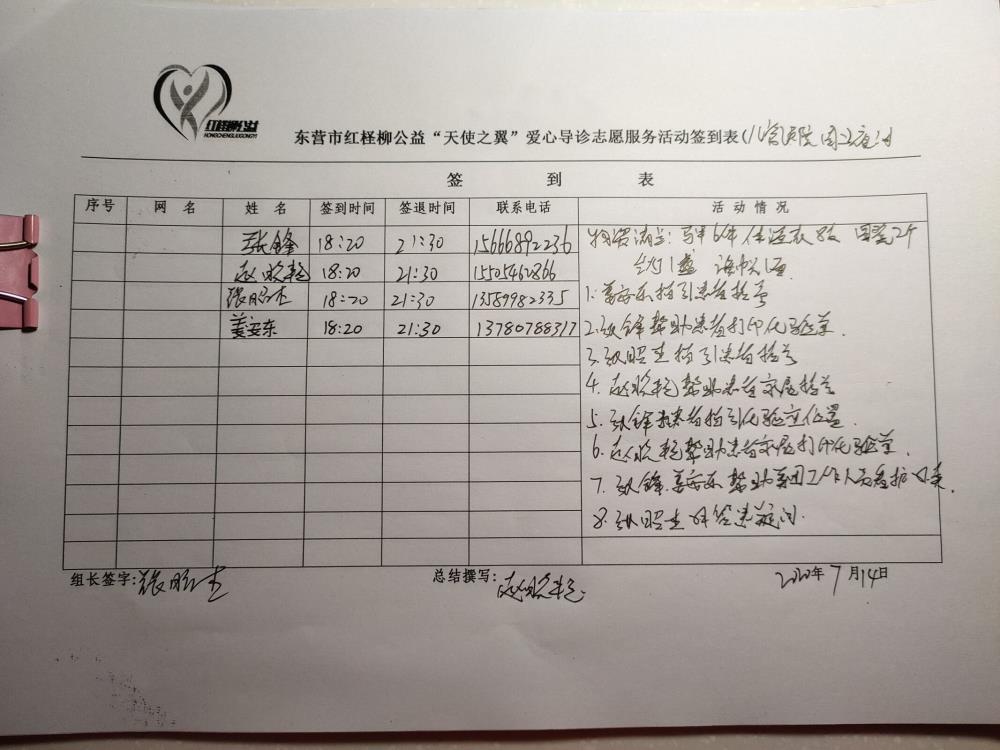 红柽柳公益
HONGCHENGLIUGONGYI
东营市红柽柳公益“天使之翼”爱心导诊志愿服务活动签到表(
签 到 表
序号 网 名 姓 名 签到时间 签退时间 联系电话 活 动 情 况
张锋 18:20 21:30 15666892236
赵晓艳 18:20 21:30 15505462866
张昭杰 18:20 21:30 13589982335
姜安东 18:20 21:30 13780788317
1.姜安东指引患者挂号
2.张锋帮助患者打印化验单.
3.张昭杰指引患者挂号
4.赵晓艳帮助患者家属挂号
5.张锋患者指引化验室位置.
6.赵晓艳帮助患者家属打印化验单.
7.张锋.姜安东帮助工作人员看护
8.张昭杰解答患者疑问.
组长签字:张昭杰 总结撰写:赵晓艳 2020年7月14日